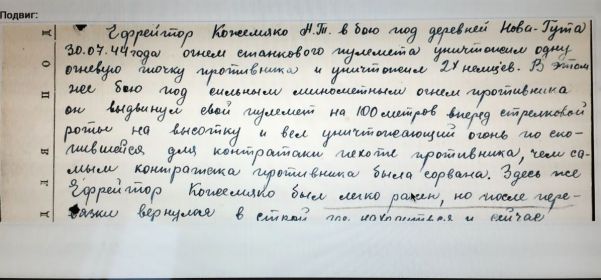 Подвиг:
Ефрейтор Кожемяко Н.Т. в бою под деревней Нова-Гута
30.07.44 года огнем станкового пулемета уничтожил одну
огневую точку противника и уничтожил 2х немцев. В этом
же бою под сильным минометным огнем противника
он выдвинул свой пулемет на 100 метров вперед стрелковой
роты на высотку и вел уничтожающий огонь по ско-
пившейся для контратаки пехоте противника, чем са-
мым контратака противника была сорвана. Здесь же
Ефрейтор Кожемяко был легко ранен, но после пере-
вязки вернулся в строй